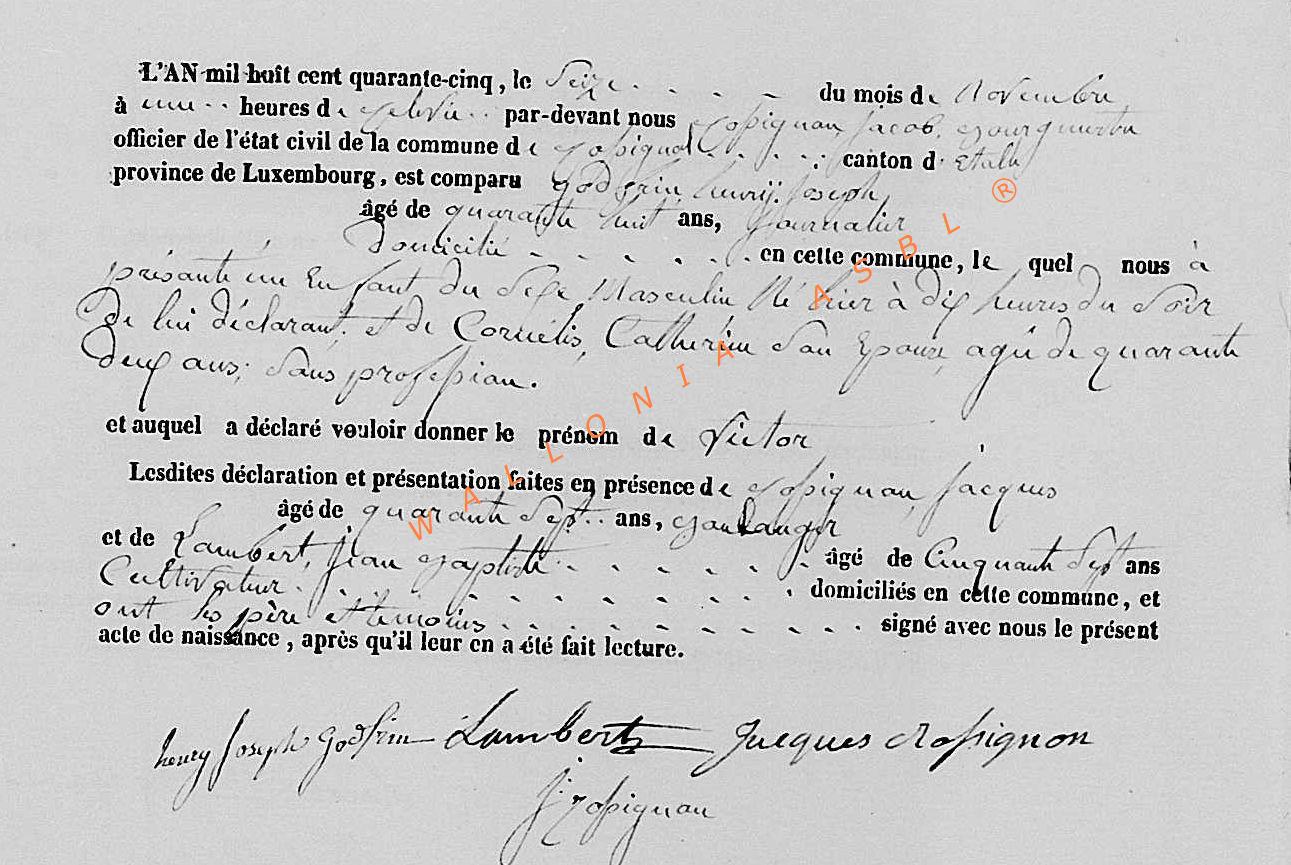 L'AN mil huit cent quarante-cinq, le Seize . . . . du mois de Novembre
à une .. heures de relevée .. par-devant nous Rossignon Jacob, Bourgmestre
officier de l'état civil de la commune de Rossignol . . . . . canton d' Etalle
province de Luxembourg, est comparu Godfrin, henrij. Joseph
âgé de quarante huit ans, Journalier
Domicilié . . . . . . en cette commune, le quel nous à
présanté un Enfant du Sexe Masculin Né hier à dix heures du Soir
De lui déclarant, et de Cornélis, Catherine Son Epouse, agée de quarante
deux ans, Sans profession.
et auquel a déclaré vouloir donner le prénom de Victor
Lesdites déclaration et présentation faites en présence de Rossignon, Jacques
âgé de quarante Sept .. ans, Boulanger
et de Lambert, Jean Baptiste . . . . . . âgé de Cinquante Sept ans
Cultivateur . . . . . . . . . domiciliés en cette commune, et
ont les père et témoins . . . . . . . . . . signé avec nous le présent
acte de naissance, après qu'il leur en a été fait lecture.
henry Joseph Godfrin Lambert Jacques Rossignon
J: Rossignon
WALLONIA ASBL ®